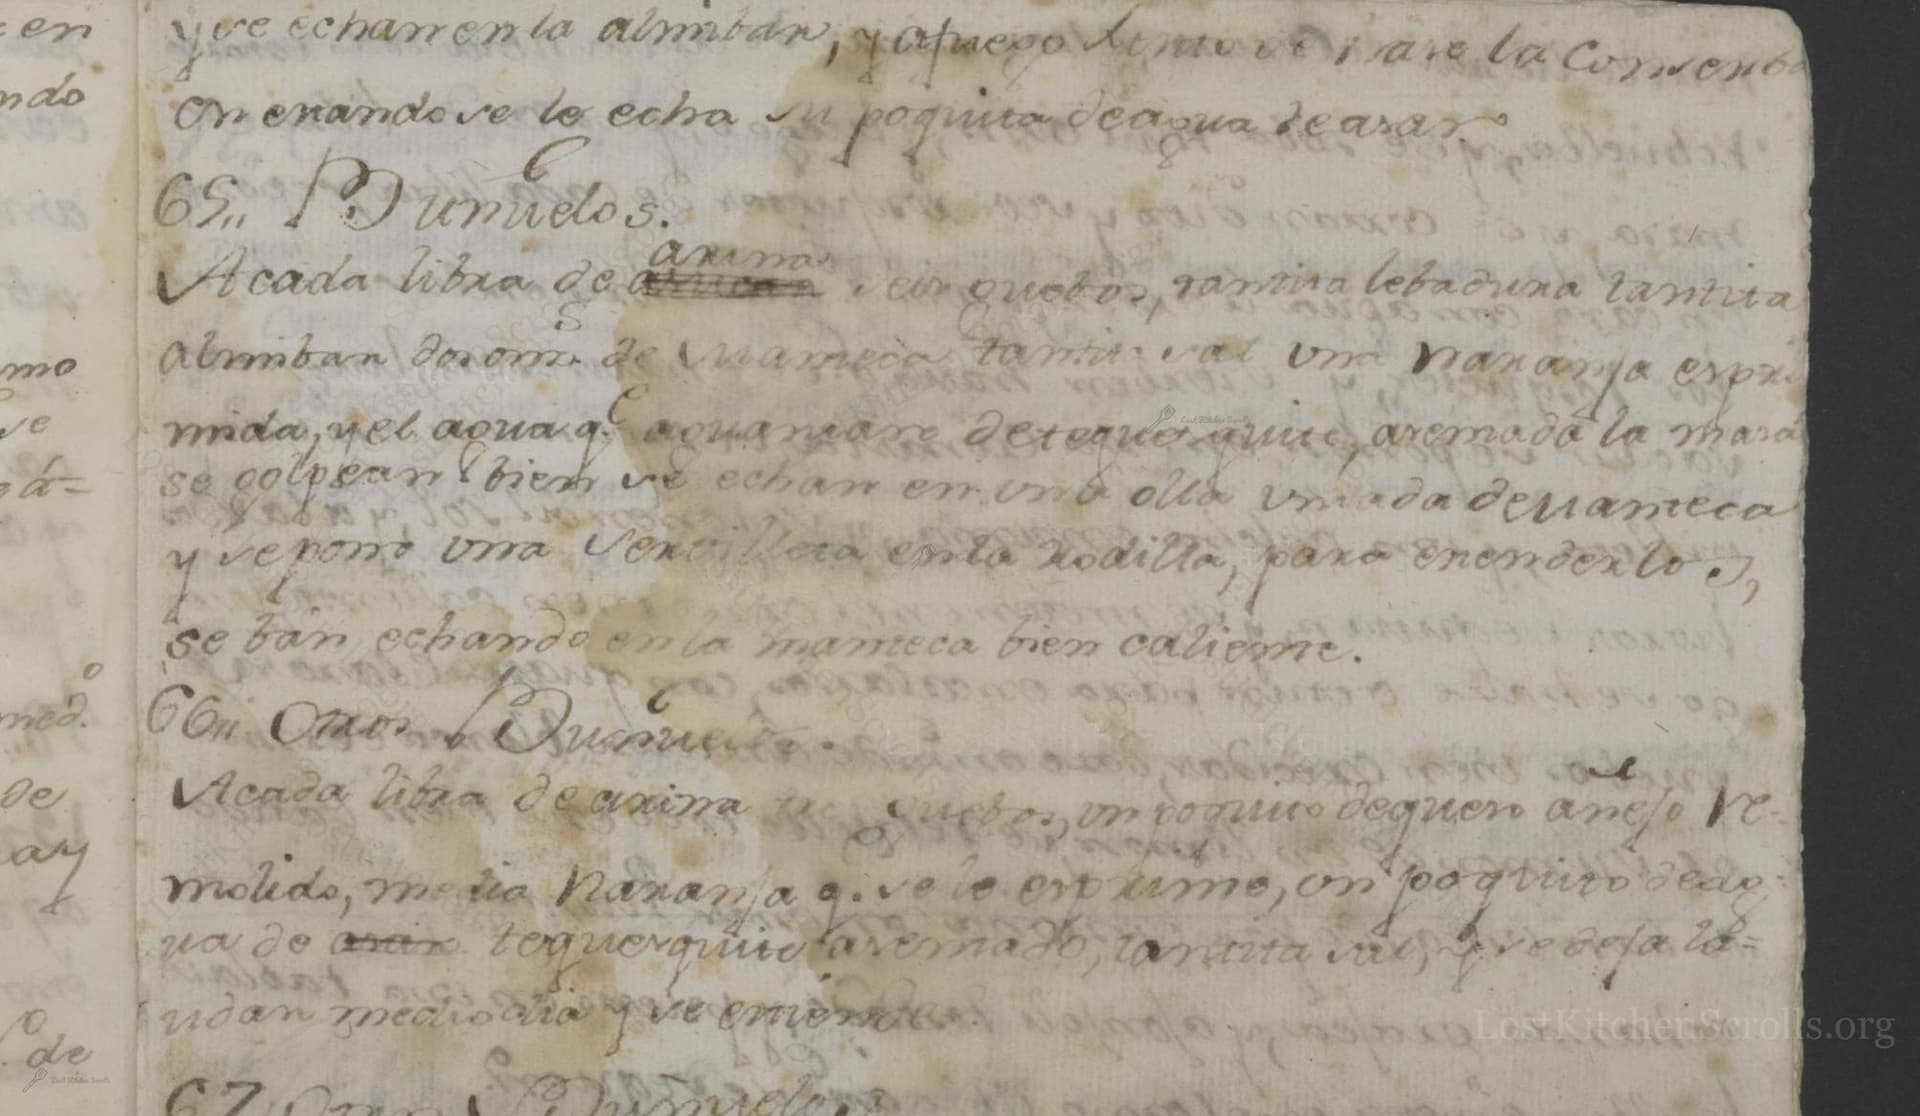 y se echan en la almibar, y afuego lento se ase la Conserba
en enando se le echa su poquita de agua de asar
65,, Buñuelos.
A cada libra de arina seis guebos, tantita lebadura tantita
almibar dos oms. de Manteca tantita sal una naranja espri
mida, y el agua q.e aguantare de tequesquite, asemada la masa
se golpean bien se echan en una olla untada de Manteca
y se pone una Servilleta en la rodilla, para enenderlos,
se bán echando en la manteca bien caliente.
66,, Otros Buñuelos.
A cada libra de arina guebos, un poquito de queso añejo Re-
molido, media Naranja q. se le esprime, un poquito de ag-
ua de tequesquite asemado, tantita sal, y se deja la-
udar mediodia y se
67 Buñuelos
en
ndo
mo
se
de
ay
med.o
de
LostKitchenScrolls.org